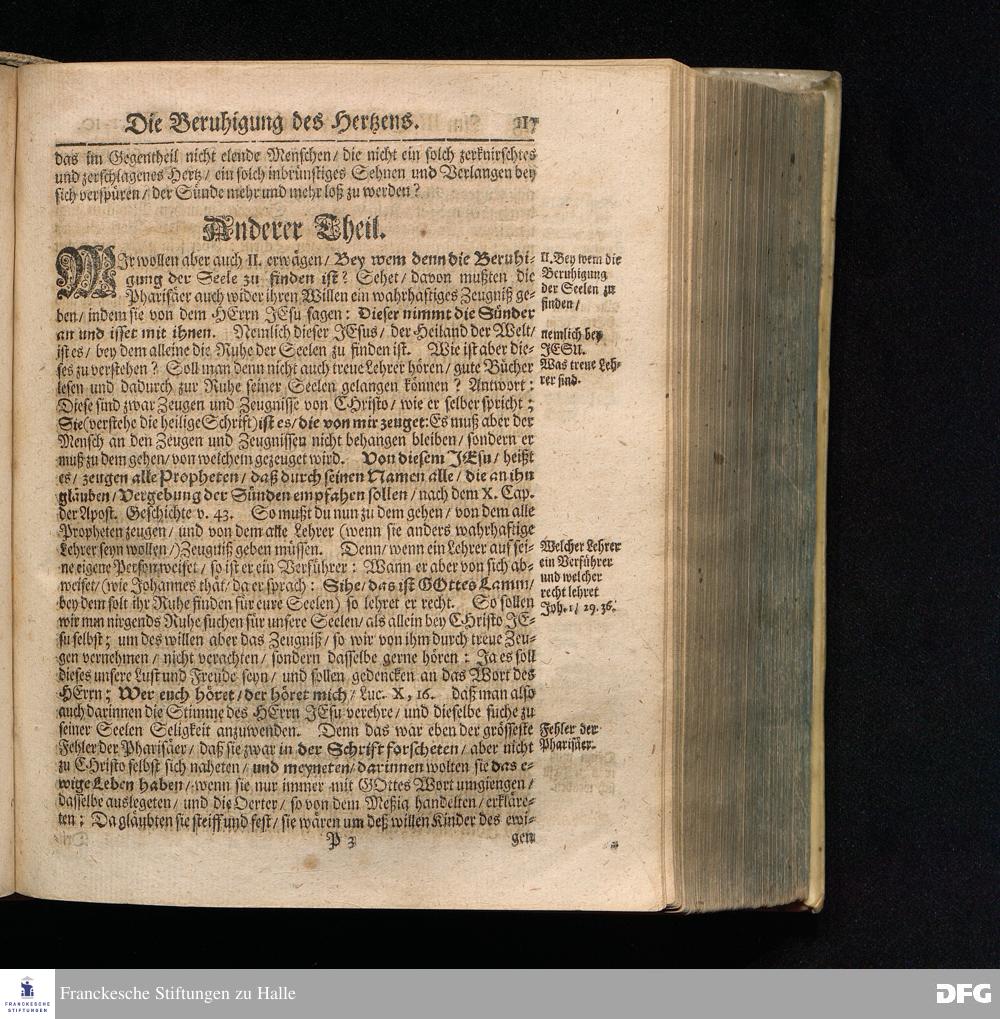 Die Beruhigung des Hertzens. 117
das im Gegentheil nicht elende Menschen/ die nicht ein solch zerknirschtes
und zerschlagenes Hertz/ ein solch inbrünstiges Sehnen und Verlangen bey
sich verspüren/ der Sünde mehr und mehr loß zu werden?
Anderer Theil.
WIr wollen aber auch II. erwägen/ Bey wem denn die Beruhi-
gung der Seele zu finden ist? Sehet/ davon mußten die
Pharisäer auch wider ihren Willen ein wahrhaftiges Zeugniß ge-
ben/ indem sie von dem HErrn JEsu sagen: Dieser nimmt die Sünder
an und isset mit ihnen. Nemlich dieser JEsus/ der Heiland der Welt/
ist es/ bey dem alleine die Ruhe der Seelen zu finden ist. Wie ist aber die-
ses zu verstehen? Soll man denn nicht auch treue Lehrer hören/ gute Bücher
lesen und dadurch zur Ruhe seiner Seelen gelangen können? Antwort:
Diese sind zwar Zeugen und Zeugnisse von CHristo/ wie er selber spricht;
Sie (verstehe die heilige Schrift) ist es/ die von mir zeuget: Es muß aber der
Mensch an den Zeugen und Zeugnissen nicht behangen bleiben/ sondern er
muß zu dem gehen/ von welchem gezeuget wird. Von diesem JEsu/ heißt
es/ zeugen alle Propheten/ daß durch seinen Namen alle/ die an ihn
gläuben/ Vergebung der Sünden empfahen sollen/ nach dem X. Cap.
der Apost. Geschichte v. 43. So mußt du nun zu dem gehen/ von dem alle
Propheten zeugen/ und von dem alle Lehrer (wenn sie anders wahrhaftige
Lehrer seyn wollen/) Zeugniß geben müssen. Denn/ wenn ein Lehrer auf sei-
ne eigene Person weiset/ so ist er ein Verführer: Wann er aber von sich ab-
weiset/ (wie Johannes thät/ da er sprach: Sihe/ das ist GOttes Lamm/
bey dem solt ihr Ruhe finden für eure Seelen) so lehret er recht. So sollen
wir nun nirgends Ruhe suchen für unsere Seelen/ als allein bey CHristo JE-
su selbst; um des willen aber das Zeugniß/ so wir von ihm durch treue Zeu-
gen vernehmen/ nicht verachten/ sondern dasselbe gerne hören: Ja es soll
dieses unsere Lust und Freude seyn/ und sollen gedencken an das Wort des
HErrn; Wer euch höret/ der höret mich/ Luc. X, 16. daß man also
auch darinnen die Stimme des HErrn JEsu verehre/ und dieselbe suche zu
seiner Seelen Seligkeit anzuwenden. Denn das war eben der grösseste
Fehler der Pharisäer/ daß sie zwar in der Schrift forscheten/ aber nicht
zu CHristo selbst sich naheten/ und meyneten/ darinnen wolten sie das e-
wige Leben haben/ wenn sie nur immer mit GOttes Wort umgiengen/
dasselbe auslegeten/ und die Oerter/ so von dem Meßia handelten/ erkläre-
ten; Da gläubten sie steiff und fest/ sie wären um deß willen Kinder des ewi-
P 3 gen
II. Bey wem die
Beruhigung
der Seelen zu
finden/
nemlich bey
JESU.
Was treue Leh-
rer sind.
Welcher Lehrer
ein Verführer
und welcher
recht lehret
Joh. 1/ 29. 36.
Fehler der
Pharisäer.
FRANCKESCHE
STIFTUNGEN
Franckesche Stiftungen zu Halle
DFG